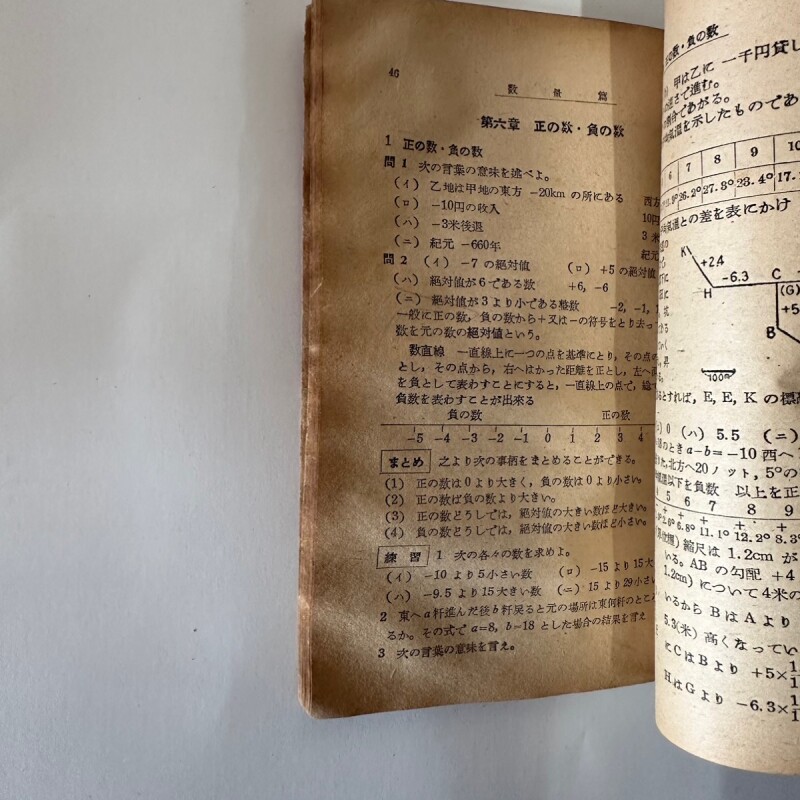 46
数量篇
第六章 正の数・負の数
1 正の数・負の数
問1 次の言葉の意味を述べよ。
(イ) 乙地は甲地の東方 -20km の所にある 西方
(ロ) -10円の収入 10円
(ハ) -3米後退 3米
(ニ) 紀元 -660年 紀元
問2 (イ) -7 の絶対値 (ロ) +5 の絶対値
(ハ) 絶対値が6である数 +6, -6
(ニ) 絶対値が3より小である整数 -2, -1,
一般に正の数, 負の数から+又は-の符号をとり去っ
数を元の数の絶対値という。
数直線 一直線上に一つの点を基準にとり, その点の
とし, その点から, 右へはかった距離を正とし, 左へ
を負として表わすことにすると, 一直線上の点で,
負数を表わすことが出来る
負の数 正の数
-5 -4 -3 -2 -1 0 1 2 3 4
まとめ 之より次の事柄をまとめることができる。
(1) 正の数は0より大きく, 負の数は0より小さい。
(2) 正の数ば負の数より大きい。
(3) 正の数どうしでは, 絶対値の大きい数ほど大きい。
(4) 負の数どうしでは, 絶対値の大きい数ほど小さい。
練習 1 次の各々の数を求めよ。
(イ) -10 より5小さい数 (ロ) -15 より15大
(ハ) -9.5 より15大きい数 (ニ) 15 より29小さい
2 東へa粁進んだ後b粁戻ると元の場所は東何粁のところ
るか。その式で a=8, b=18 とした場合の結果を言え
3 次の言葉の意味を言え。
の数・負の数
甲は乙に 一千円貸し
さで進む。
割合であがる。
気温を示したものであ
6 7 8 9 10
26.2° 27.3° 23.4° 17.
気温との差を表にかけ
K +2.4 -6.3 C
H (G) +5
B
100m
るとすれば, E, E, K の標高
0 (ハ) 5.5 (ニ)
のとき a-b=-10 西へ
北方へ20ノット, 5°の
以下を負数 以上を正
5 6 7 8 9
+ + + +
6.8° 11.1° 12.2° 8.3°
縮尺は 1.2cm が
いる。AB の勾配 +4
1.2cm) について4米の
いるから BはAより
5.3(米) 高くなってい
にCはBより +5×
HはGより -6.3×